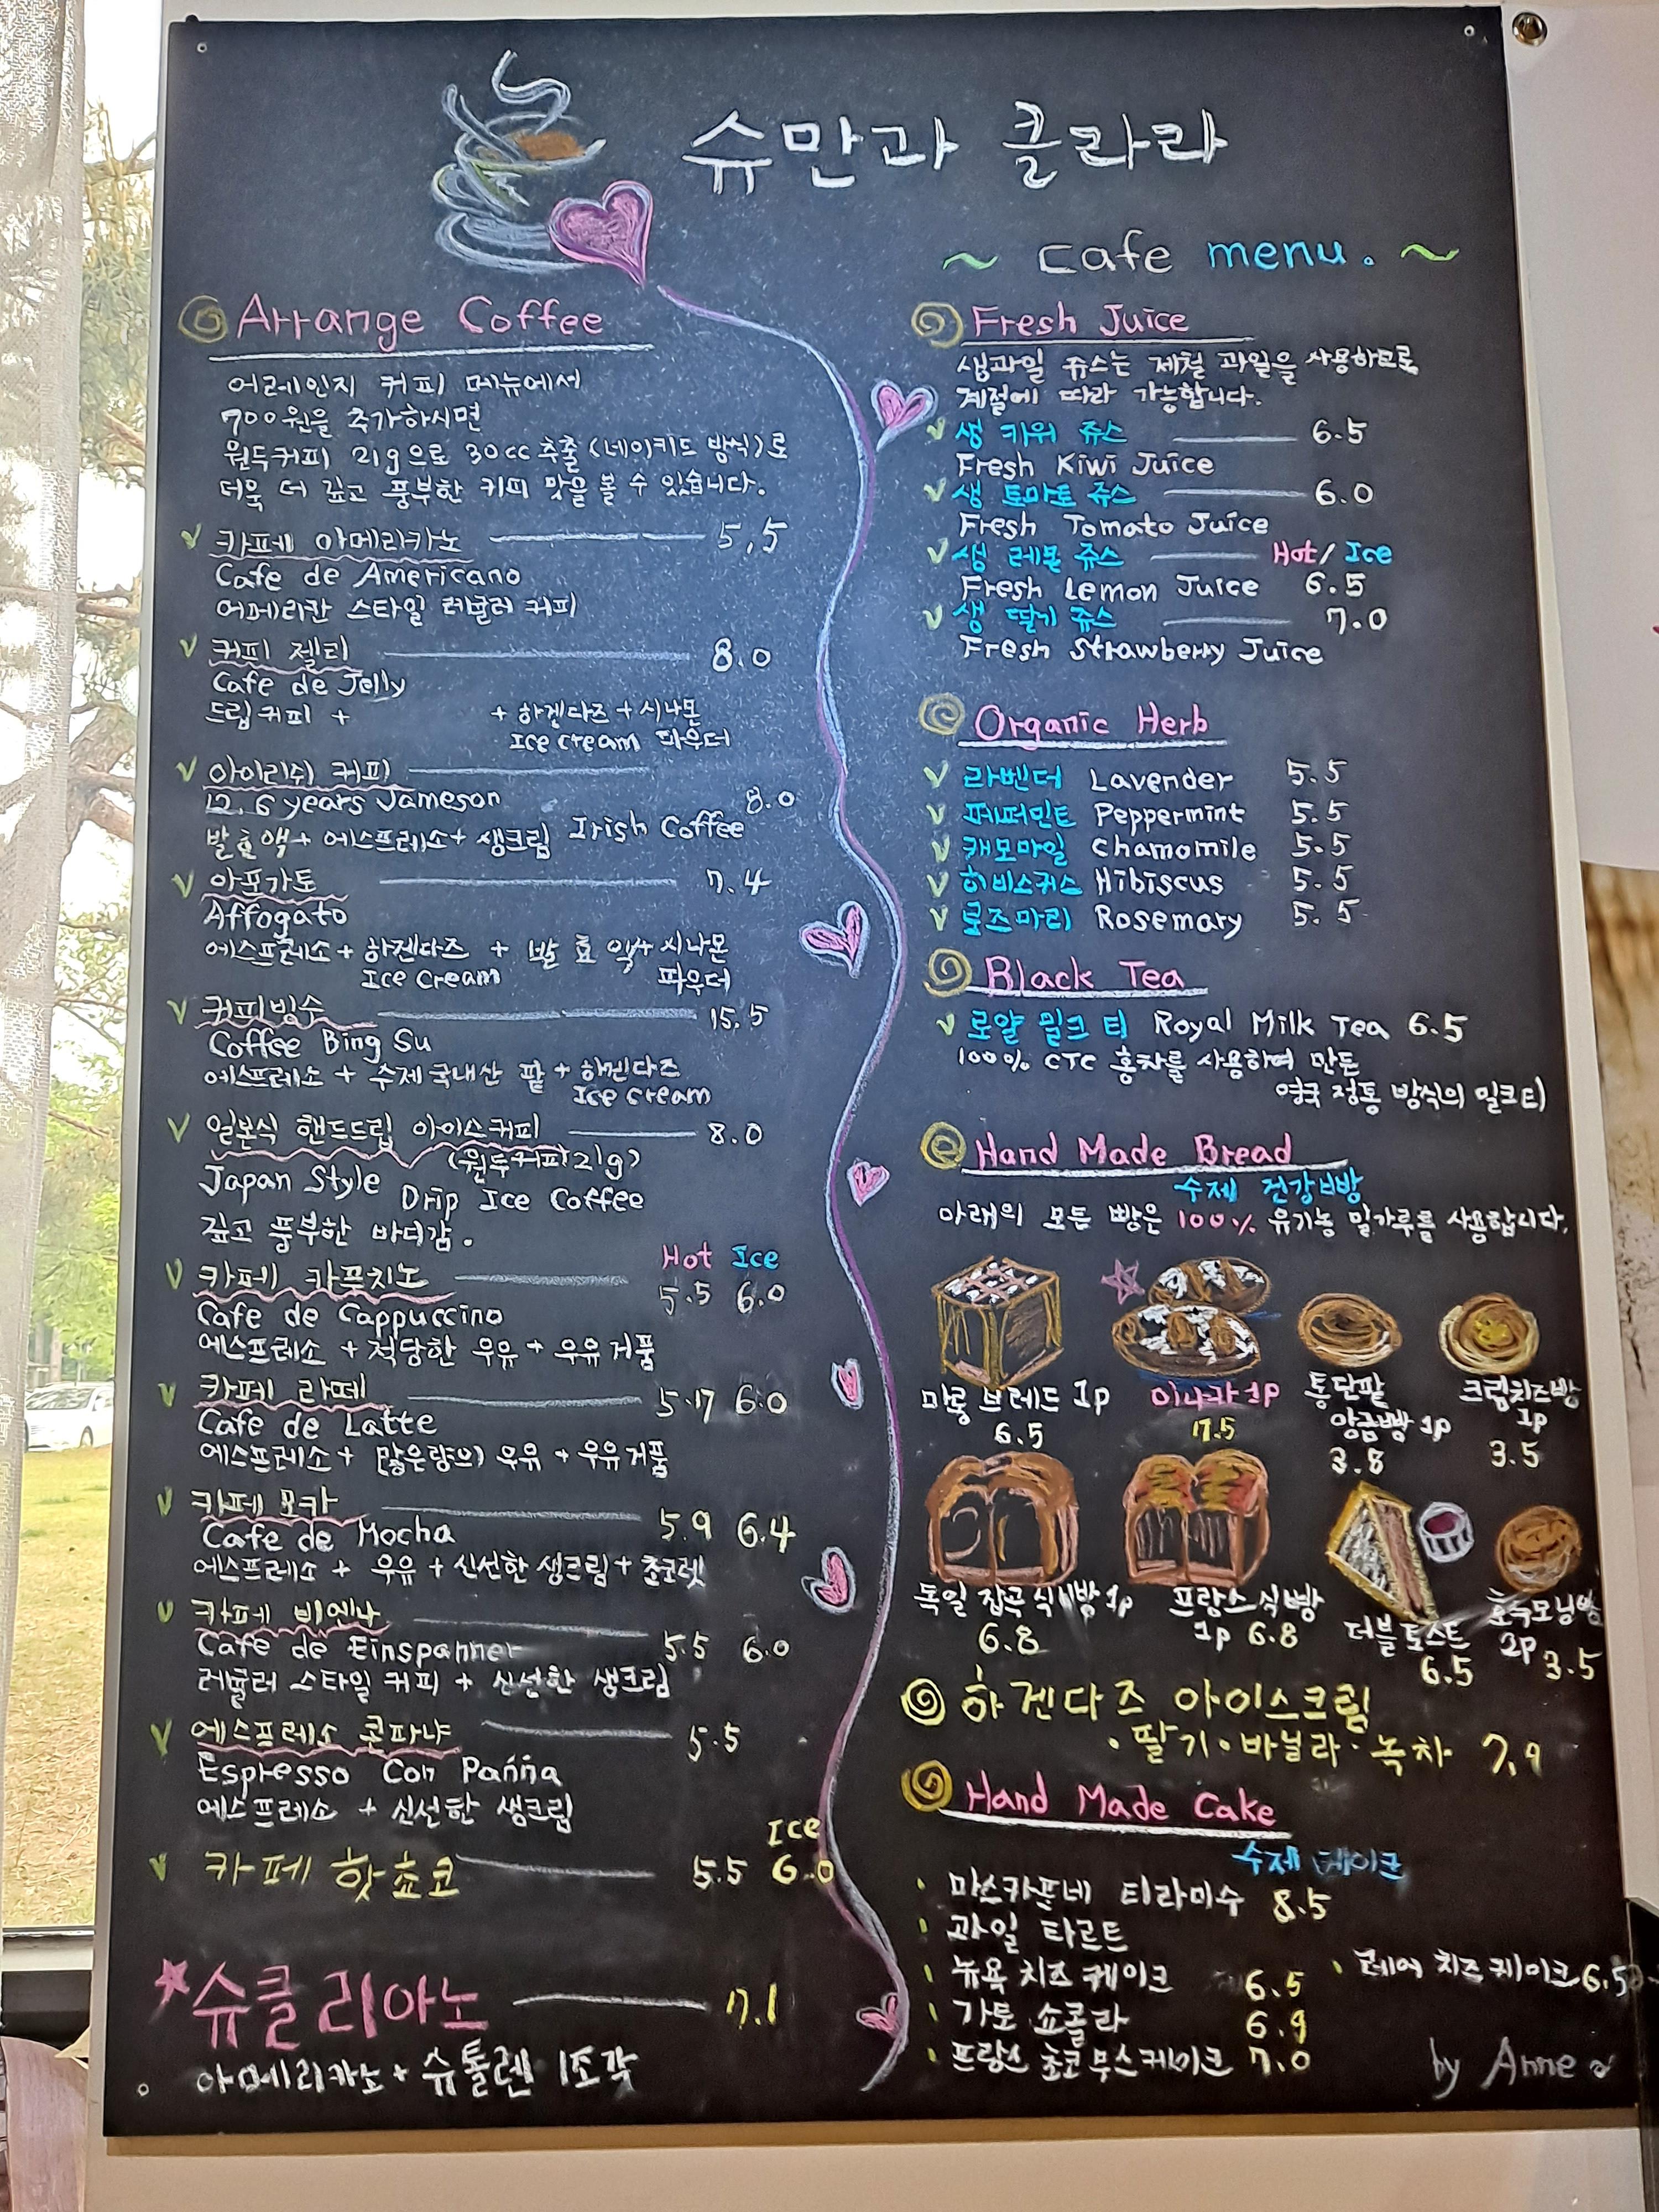 슈만과 클라라
~ cafe menu. ~
Arrange Coffee
어레인지 커피 메뉴에서
700원을 추가하시면
원두커피 21g으로 30cc 추출(네이키드 방식)로
더욱 더 깊고 풍부한 커피 맛을 볼 수 있습니다.
카페 아메리카노 5.5
Cafe de Americano
어메리칸 스타일 레귤러 커피
커피 젤티 8.0
Cafe de Jelly
드립커피 + + 하겐다즈 + 시나몬
Ice cream 파우더
아이리쉬 커피
12.6 years Jameson 8.0
발효액 + 에스프레소 + 생크림 Irish Coffee
아포가토 7.4
Affogato
에스프레소 + 하겐다즈 + 발효액 + 시나몬
Ice Cream 파우더
커피빙수 15.5
Coffee Bing Su
에스프레소 + 수제 국내산 팥 + 하겐다즈
Ice cream
일본식 핸드드립 아이스커피 8.0
(원두커피 21g)
Japan Style Drip Ice Coffee
깊고 풍부한 바디감.
Hot Ice
카페 카푸치노 5.5 6.0
Cafe de Cappuccino
에스프레소 + 적당한 우유 + 우유거품
카페 라떼 5.17 6.0
Cafe de Latte
에스프레소 + 많은량의 우유 + 우유거품
카페 모카 5.9 6.4
Cafe de Mocha
에스프레소 + 우유 + 신선한 생크림 + 초코렛
카페 비엔나
Cafe de Einspanner 5.5 6.0
레귤러 스타일 커피 + 신선한 생크림
에스프레소 콘파냐 5.5
Espresso Con Panna
에스프레소 + 신선한 생크림
Ice
카페 핫쵸코 5.5 6.0
슈클리아노 7.1
아메리카노 + 슈톨렌 1조각
Fresh Juice
생과일 쥬스는 제철 과일을 사용하므로
계절에 따라 가능합니다.
생 키위 쥬스 6.5
Fresh Kiwi Juice
생 토마토 쥬스 6.0
Fresh Tomato Juice
생 레몬 쥬스 Hot / Ice
Fresh Lemon Juice 6.5
생 딸기 쥬스 7.0
Fresh Strawberry Juice
Organic Herb
라벤더 Lavender 5.5
페퍼민트 Peppermint 5.5
캐모마일 Chamomile 5.5
히비스커스 Hibiscus 5.5
로즈마리 Rosemary 5.5
Black Tea
로얄 밀크 티 Royal Milk Tea 6.5
100% CTC 홍차를 사용하여 만든
영국 정통 방식의 밀크티
Hand Made Bread
수제 건강빵
아래의 모든 빵은 100% 유기농 밀가루를 사용합니다.
마롱 브레드 1p 6.5
이나카 1p 7.5
통단팥 앙금빵 1p 3.8
크림치즈빵 1p 3.5
독일 잡곡 식빵 1p 6.8
프랑스 식빵 1p 6.8
더블 토스트 6.5
호수모닝빵 2p 3.5
하겐다즈 아이스크림
· 딸기 · 바닐라 · 녹차 7.9
Hand Made Cake
수제 케이크
마스카포네 티라미수 8.5
과일 타르트
뉴욕 치즈 케이크 6.5
· 레어 치즈 케이크 6.5
가토 쇼콜라 6.9
프랑스 쵸코 무스케이크 7.0
by Anne